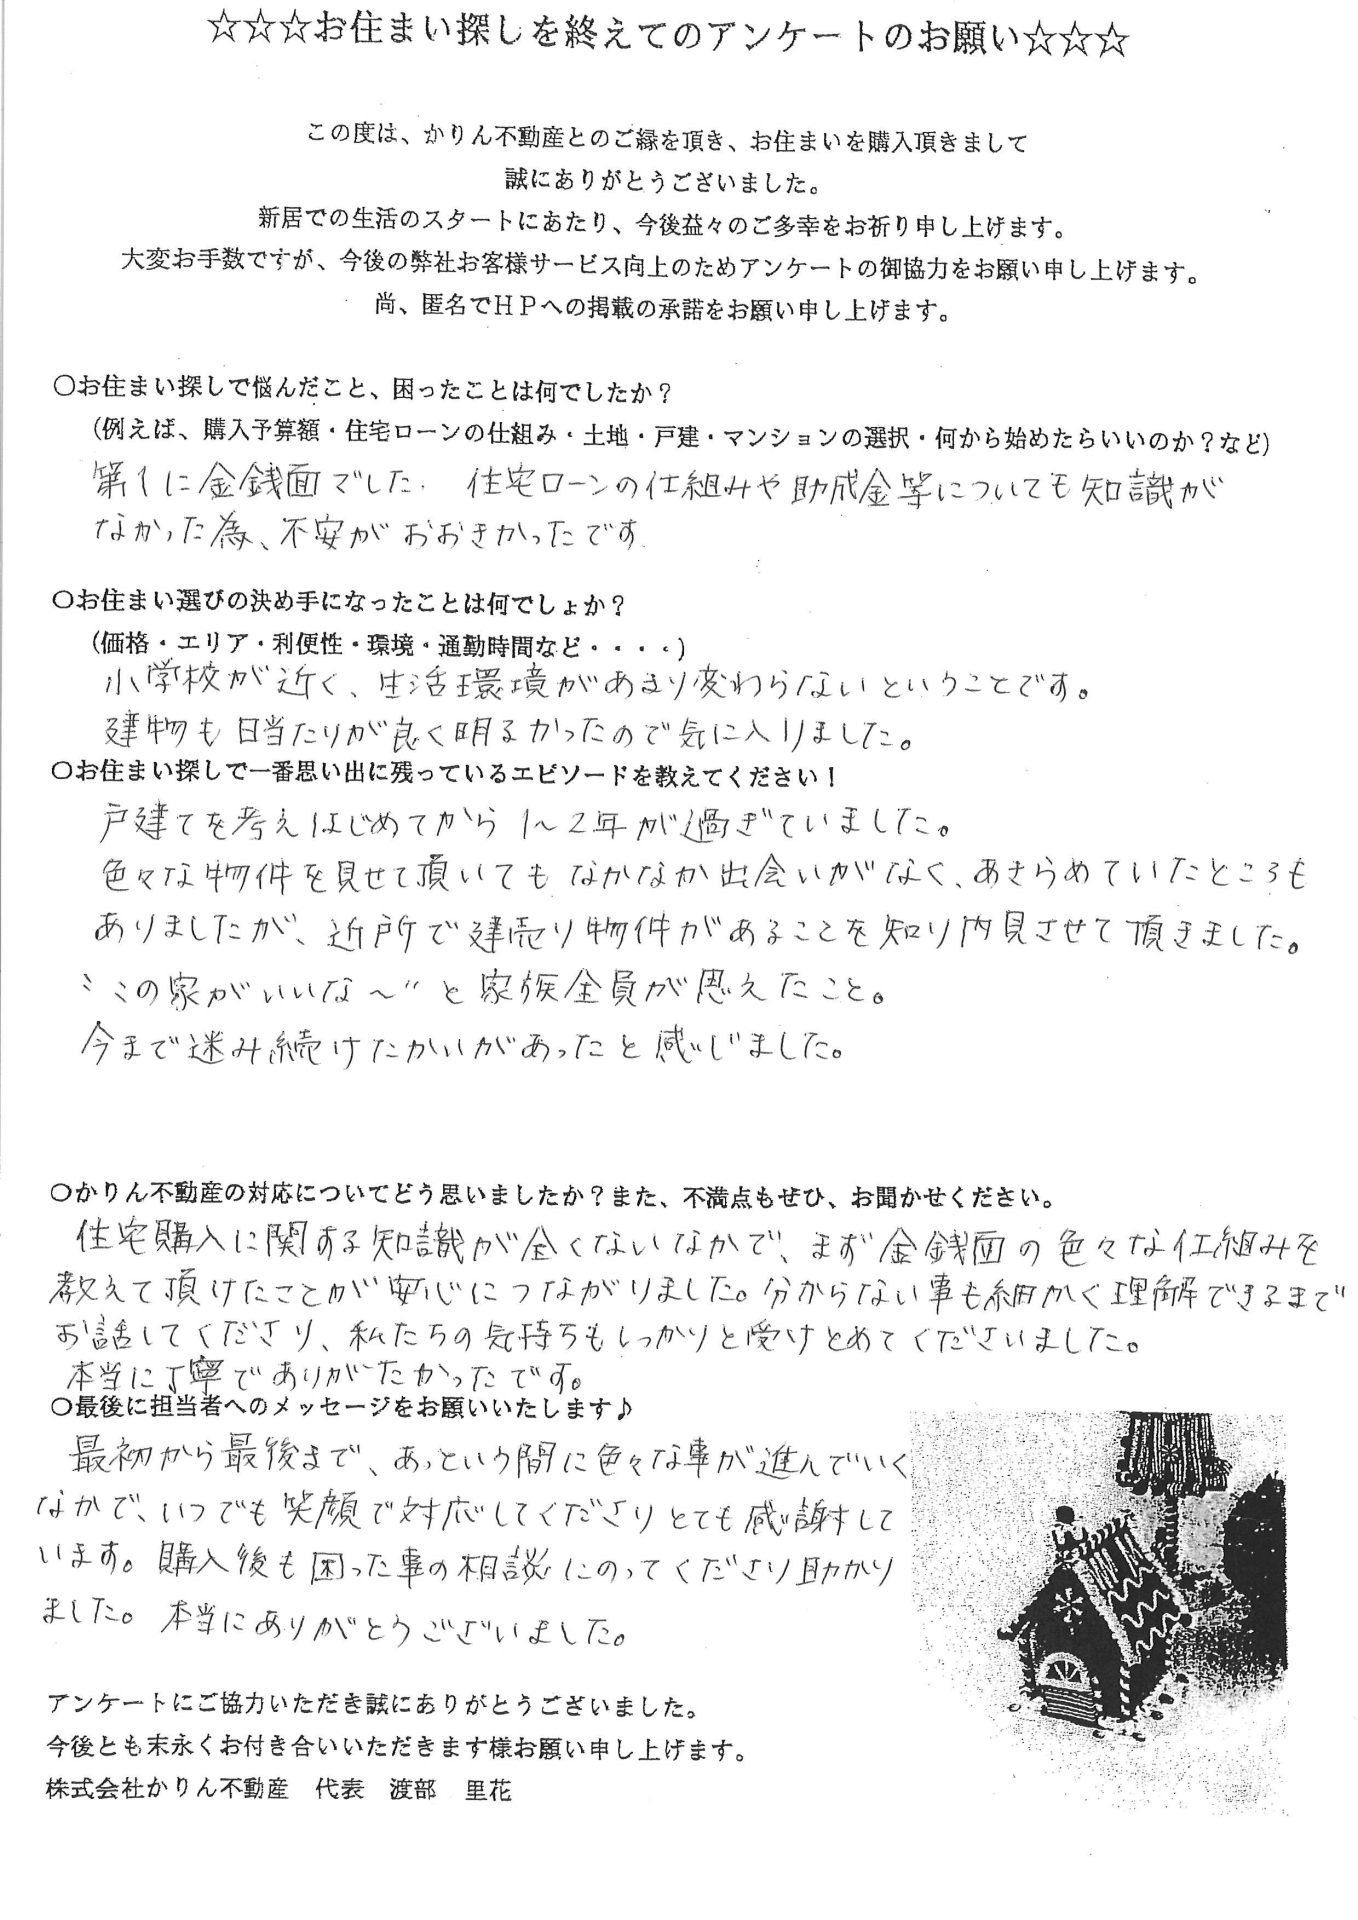 ☆☆☆お住まい探しを終えてのアンケートのお願い☆☆☆
この度は、かりん不動産とのご縁を頂き、お住まいを購入頂きまして
誠にありがとうございました。
新居での生活のスタートにあたり、今後益々のご多幸をお祈り申し上げます。
大変お手数ですが、今後の弊社お客様サービス向上のためアンケートの御協力をお願い申し上げます。
尚、匿名でHPへの掲載の承諾をお願い申し上げます。
○お住まい探しで悩んだこと、困ったことは何でしたか？
（例えば、購入予算額・住宅ローンの仕組み・土地・戸建・マンションの選択・何から始めたらいいのか？など）
第1に金銭面でした. 住宅ローンの仕組みや助成金等についても知識が
なかった為、不安がおおきかったです.
○お住まい選びの決め手になったことは何でしょか？
（価格・エリア・利便性・環境・通勤時間など・・・・）
小学校が近く、生活環境があまり変わらないということです。
建物も日当たりが良く明るかったので気に入りました。
○お住まい探しで一番思い出に残っているエピソードを教えてください！
戸建てを考えはじめてから1～2年が過ぎていました。
色々な物件を見せて頂いてもなかなか出会いがなく、あきらめていたところも
ありましたが、近所で建売り物件があることを知り内見させて頂きました。
〝この家がいいな～〟と家族全員が思えたこと。
今まで迷み続けたかいがあったと感じました。
○かりん不動産の対応についてどう思いましたか？また、不満点もぜひ、お聞かせください。
住宅購入に関する知識が全くないなかで、まず金銭面の色々な仕組みを
教えて頂けたことが安心につながりました。分からない事も細かく理解できるまで
お話してくださり、私たちの気持ちもしっかりと受けとめてくださいました。
本当に丁寧でありがたかったです。
○最後に担当者へのメッセージをお願いいたします♪
最初から最後まで、あっという間に色々な事が進んでいく
なかで、いつでも笑顔で対応してくださりとても感謝して
います。購入後も困った事の相談にのってくださり助かり
ました。本当にありがとうございました。
アンケートにご協力いただき誠にありがとうございました。
今後とも末永くお付き合いいただきます様お願い申し上げます。
株式会社かりん不動産　代表　渡部　里花